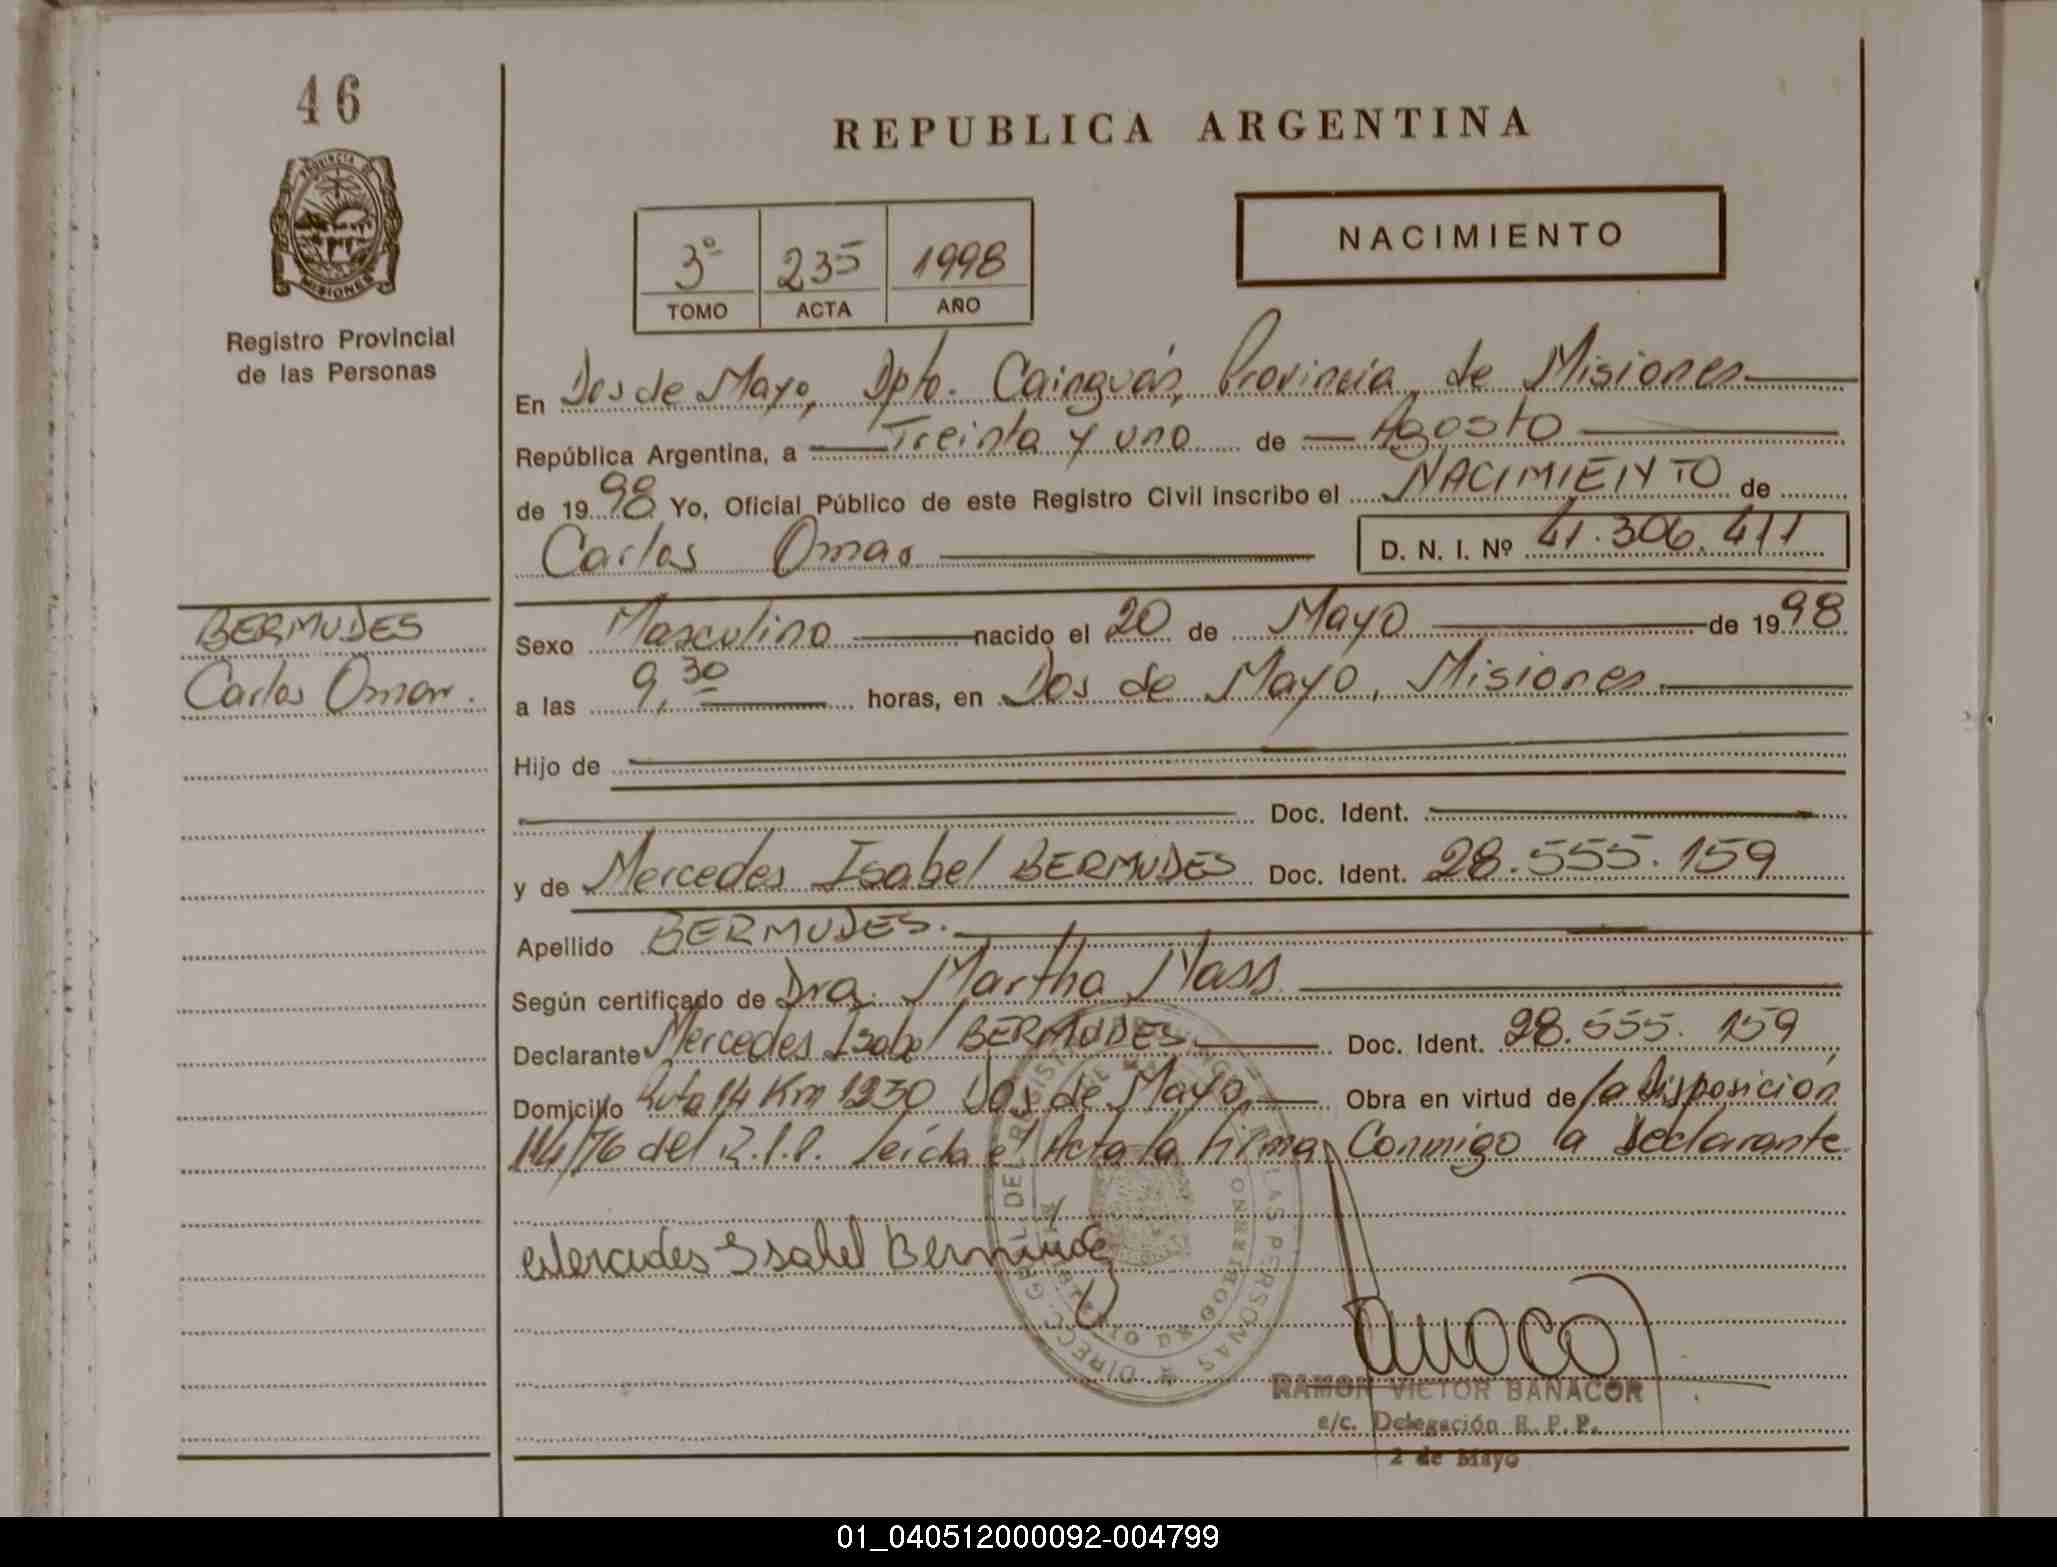 46
PROVINCIA
MISIONES
Registro Provincial
de las Personas
BERMUDES
Carlos Omar.
REPUBLICA ARGENTINA
3º 235 1998
TOMO ACTA AÑO
NACIMIENTO
En Dos de Mayo, Dpto. Cainguás, Provincia de Misiones
República Argentina, a Treinta y uno de Agosto
de 1998 Yo, Oficial Público de este Registro Civil inscribo el NACIMIENTO de
Carlos Omar D. N. I. Nº 41.306.411
Sexo Masculino nacido el 20 de Mayo de 1998
a las 9,30 horas, en Dos de Mayo, Misiones
Hijo de
Doc. Ident.
y de Mercedes Isabel BERMUDES Doc. Ident. 28.555.159
Apellido BERMUDES.
Según certificado de Dra. Martha Nass
Declarante Mercedes Isabel BERMUDES Doc. Ident. 28.555.159
Domicilio Ruta 14 Km 1230 Dos de Mayo, Obra en virtud de la Disposición
114/76 del R.P.P. leída el Acta la firma Conmigo la Declarante
Mercedes Isabel Bermudez
RAMON VICTOR BANACOR
e/c. Delegación R. P. P.
2 de Mayo
01_040512000092-004799